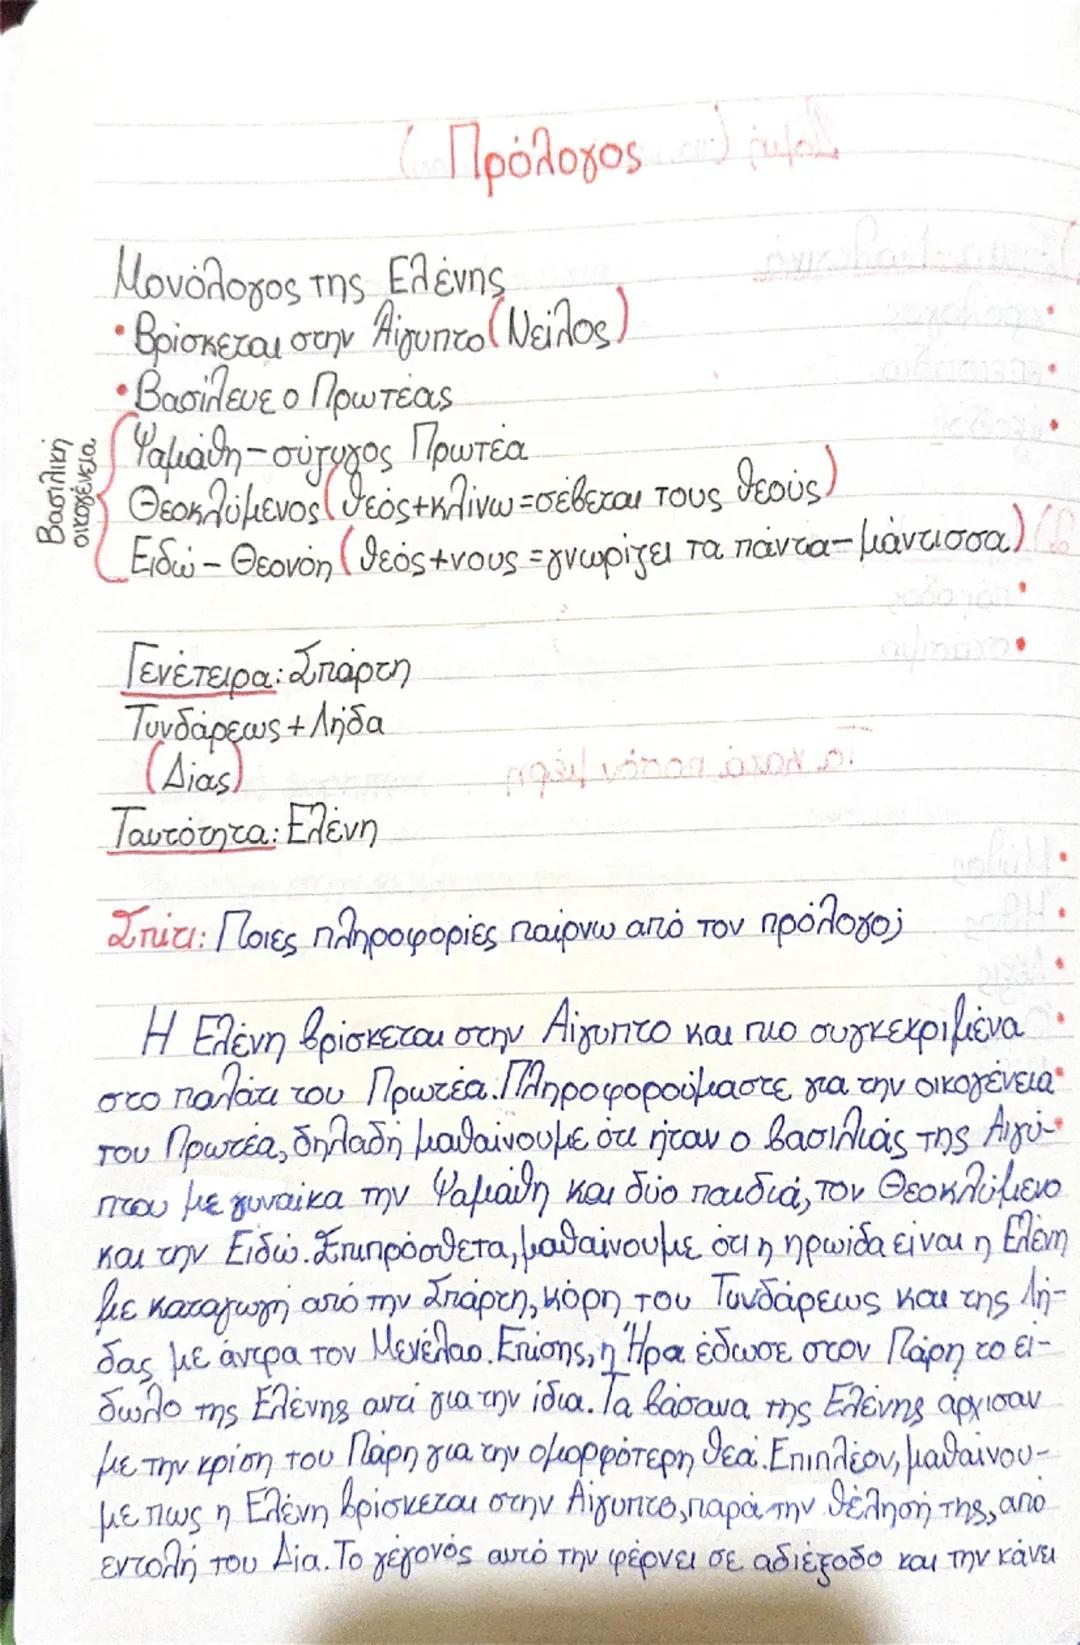 Πρόλογος
Μονόλογος της Ελένης
• Βρίσκεται στην Αίγυπτο (Νείλος)
• Βασίλευε ο Πρωτέας
Βασιλική οικογένεια
Ψαμάθη - σύζυγος Πρωτέα
Θεοκλύμενος (θεός+κλίνω=σέβεται τους θεούς)
Ειδώ - Θεονόη (θεός+νους=γνωρίζει τα πάντα - μάντισσα)
Γενέτειρα: Σπάρτη
Τυνδάρεως + Λήδα
(Δίας)
Ταυτότητα: Ελένη
Σπίτι: Ποιες πληροφορίες παίρνω από τον πρόλογο;
Η Ελένη βρίσκεται στην Αίγυπτο και πιο συγκεκριμένα
στο παλάτι του Πρωτέα. Πληροφορούμαστε για την οικογένεια
του Πρωτέα, δηλαδή μαθαίνουμε ότι ήταν ο βασιλιάς της Αιγύ-
πτου με γυναίκα την Ψαμάθη και δύο παιδιά, τον Θεοκλύμενο
και την Ειδώ. Επιπρόσθετα, μαθαίνουμε ότι η ηρωίδα είναι η Ελένη
με καταγωγή από την Σπάρτη, κόρη του Τυνδάρεως και της Λή-
δας με άντρα τον Μενέλαο. Επίσης, η Ήρα έδωσε στον Πάρη το εί-
δωλο της Ελένης αντί για την ίδια. Τα βάσανα της Ελένης άρχισαν
με την κρίση του Πάρη για την ομορφότερη θεά. Επιπλέον, μαθαίνου-
με πως η Ελένη βρίσκεται στην Αίγυπτο, παρά την θέλησή της, από
εντολή του Δία. Το γεγονός αυτό την φέρνει σε αδιέξοδο και την κάνει